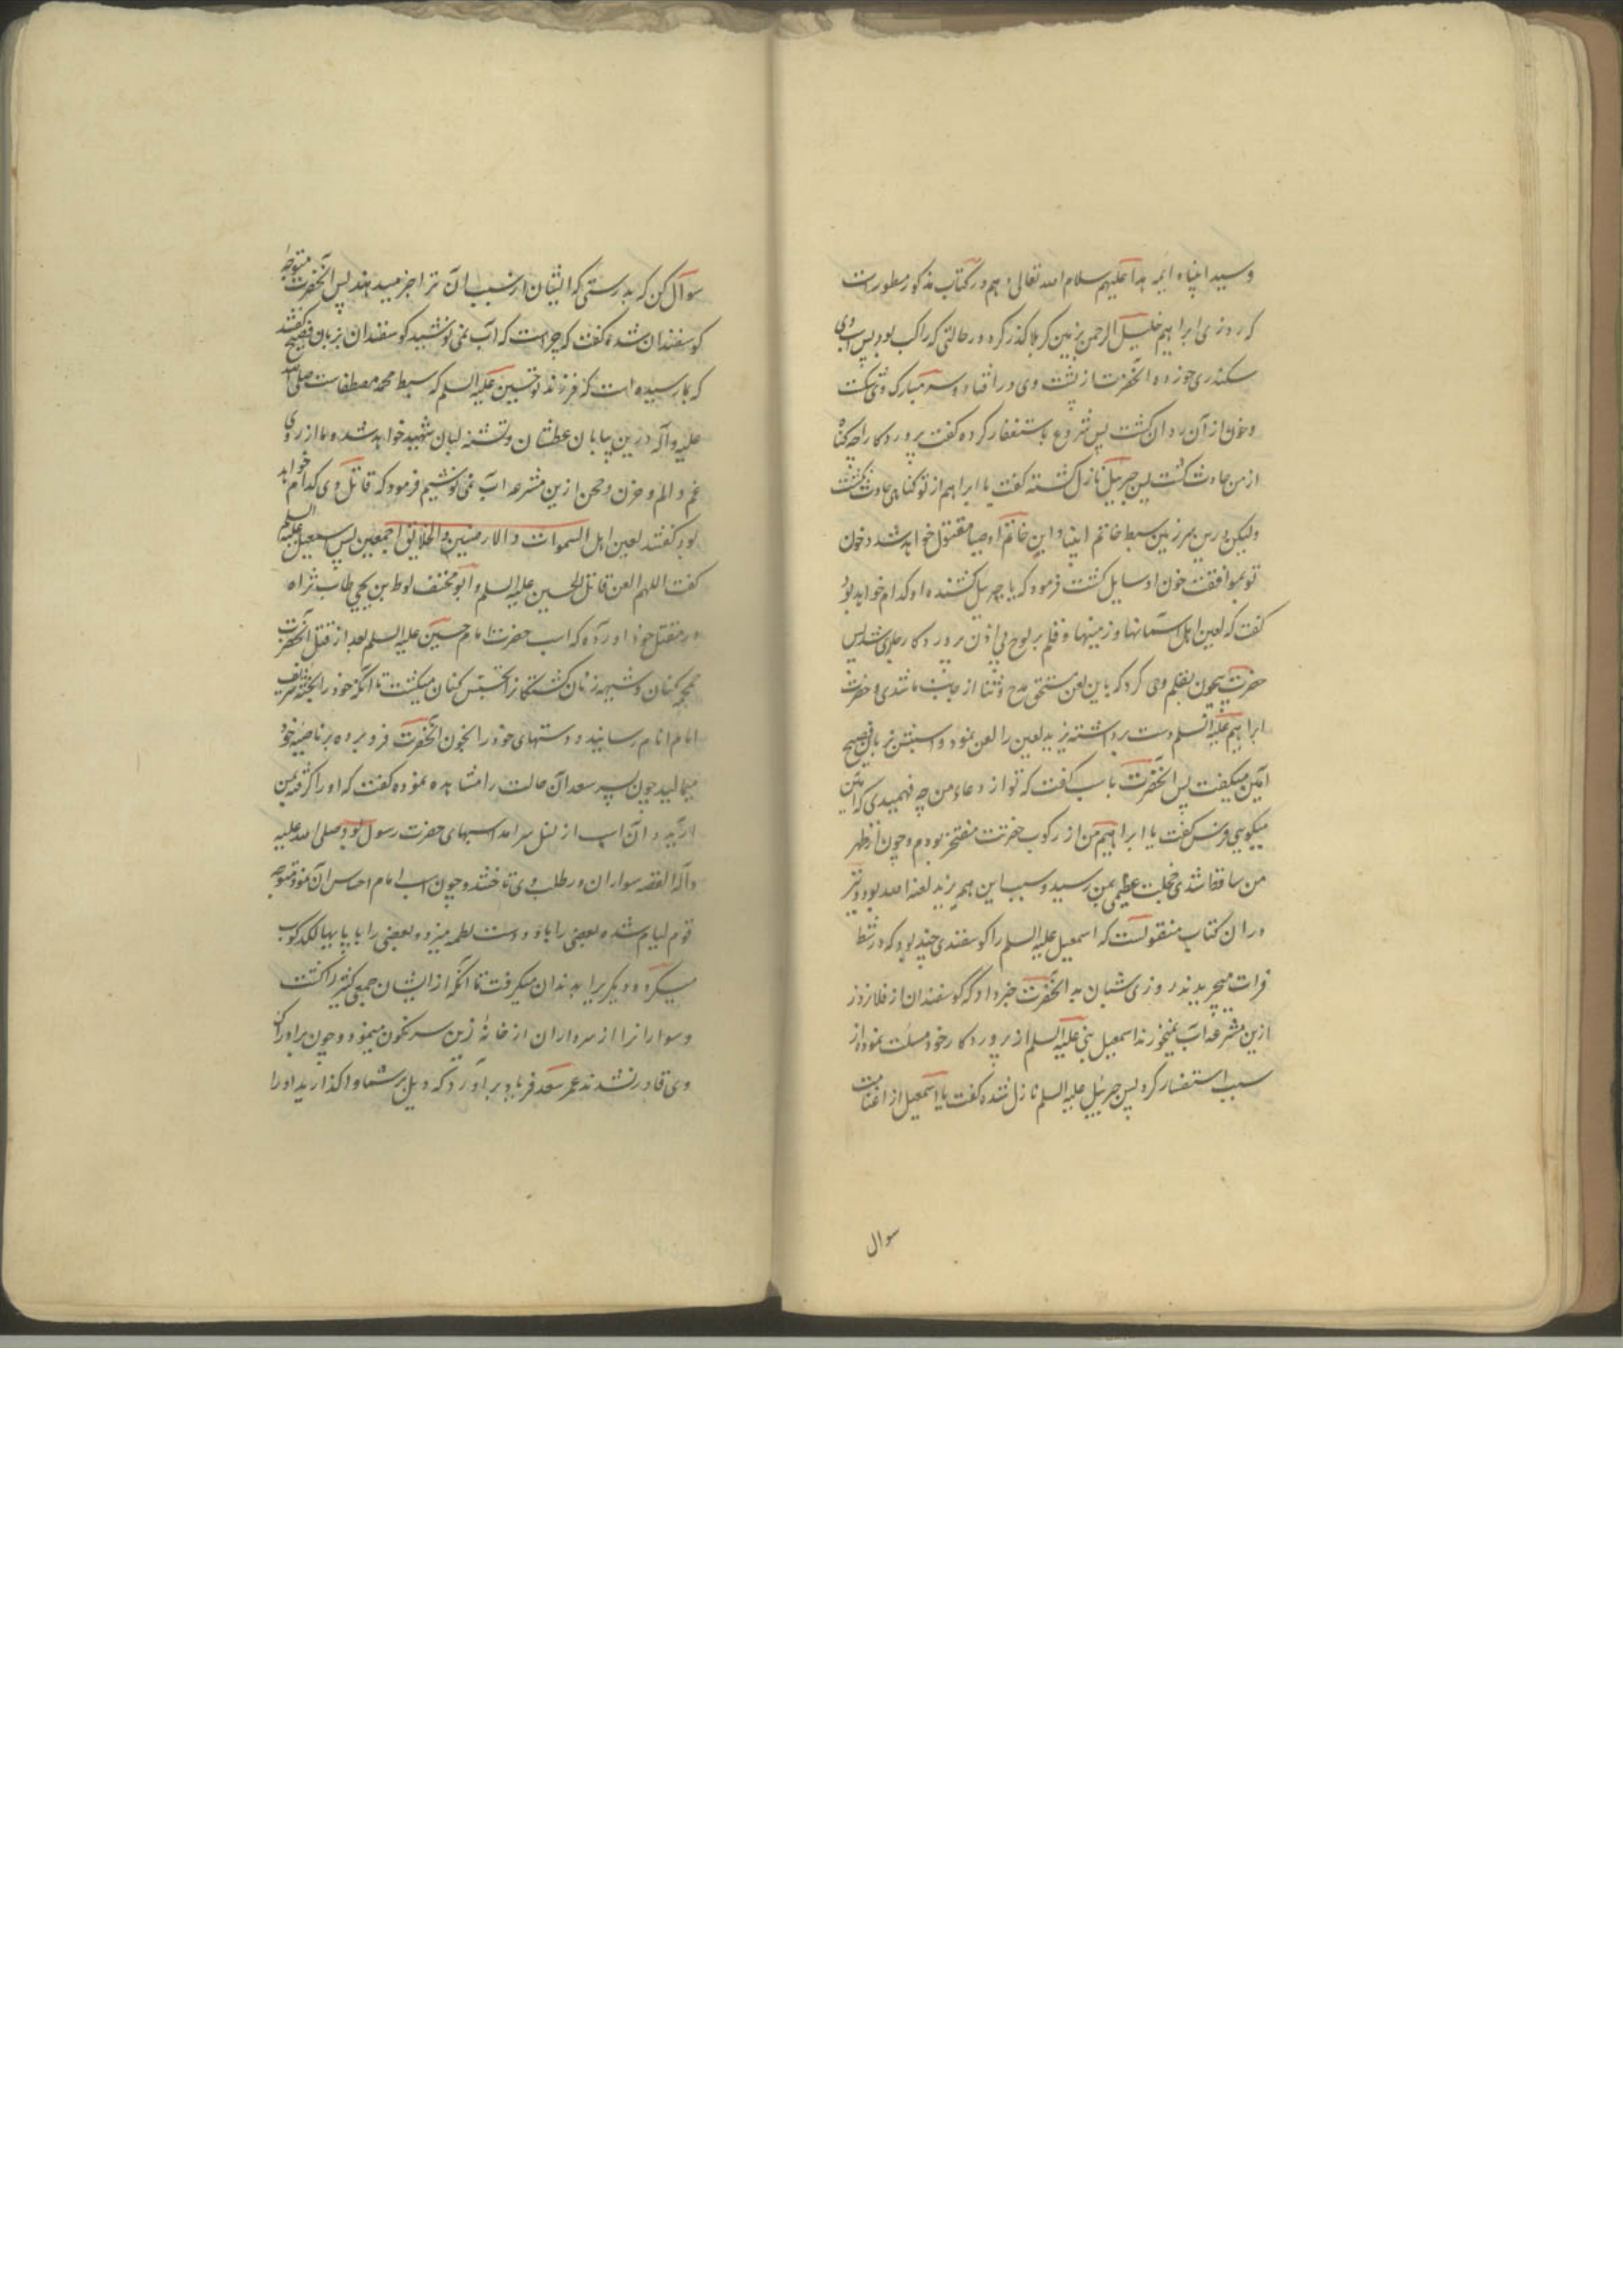 وسید انبیاء و ائمه هدا علیهم سلام الله تعالی و هم در کتاب مذکور مسطور است
که روزی ابراهیم خلیل الرحمن بزمین کربلا گذر کرد در حالتی که راکب بود پس اسب وی
سکندری خورده آنحضرت از پشت وی در افتاد و سر مبارک وی شکست
و خون از آن روان گشت پس شروع باستغفار کرده گفت پروردکارا چه گناه
از من حادث گشت پس جبرییل نازل گشته گفت یا ابراهیم از تو گناهی حادث نگشت
ولیکن درین سرزمین سبط خاتم انبیا و ابن خاتم اوصیا مقتول خواهد شد و خون
تو بموافقت خون او سایل گشت فرمود که یا جبرییل کشنده او کدام خواهد بود
گفت که لعین اهل آسمانها و زمینها و قلم بر لوح بی اذن پروردکار جاری شد پس
حضرت بیچون بقلم وحی کرد که باین لعن مستحق مدح و ثنا از جانب ما شدی و حضرت
ابراهیم علیه السلم دست برداشته یزید لعین را لعن نمود و اسبش بزبان فصیح
آمین میگفت پس آنحضرت باسب گفت که تو از دعاء من چه فهمیدی که آمین
میکویی فرس گفت یا ابراهیم من از رکوب حضرتت مفتخر بودم و چون از ظهر
من ساقط شدی خجلت عظیمی بمن رسید و سبب این هم یزید لعنه الله بود و نیز
در ان کتاب منقولست که اسمعیل علیه السلم را کوسفندی چند بود که در شط
فرات میچریدند روزی شبان به آنحضرت خبر داد که گوسفندان از فلان روز
ازین مشرعه آب نمیخورند اسمعیل نبی علیه السلم از پروردکار خود مسئلت نموده از
سبب استفسار کرد پس جبرئیل علیه السلم نازل شده گفت یا اسمعیل از اغنامت
سوال
سوال کن که بدرستی که ایشان از سبب ان ترا خبر میدهند پس آنحضرت متوجه
کوسفندان شده گفت که چراست که آب نمی نوشید کوسفندان بزبان فصیح گفتند
که بما رسیده است که فرزند تو حسین علیه السلم که سبط محمد مصطفاست صلی الله
علیه و آله درین بیابان عطشان و تشنه لبان شهید خواهد شد و ما از روی
غم و الم و حزن و محن ازین مشرعه آب نمی نوشیم فرمود که قاتل وی کدام خواهد
بود گفتند لعین اهل السموات و الارضین و الخلایق اجمعین پس اسمعیل علیه السلم
گفت اللهم العن قاتل الحسین علیه السلم و ابو مخنف لوط بن یحیی طاب ثراه
در مقتل خود اورده که اسب حضرت امام حسین علیه السلم بعد از قتل آنحضرت
حمحمه کنان و شیهه زنان کشتکانرا تجسس کنان میکشت تا آنکه خود را بجثه شریف
امام انام رسانید و دستهای خود را بخون آنحضرت فرو برده بر ناصیه خود
میمالید چون پسر سعد آن حالت را مشاهده نموده گفت که او را گرفته بمن
آرید و آن اسب از نسل سرآمد اسبهای حضرت رسول بود صلی الله علیه
و آله القصه سواران در طلب وی تاختند و چون اسب امام احساس آن نمود متوجه
قوم لیام شده بعضی را بدو دست لطمه میزد و بعضی را با پایها لگدکوب
میکرد و دیگریرا بدندان میکرفت تا آنکه از ایشان جمعی کثیر را کشت
و سوارانرا از سرداران از خانه زین سرنکون مینمود و چون بر ادراک
وی قادر نشدند عمر سعد فریاد برآورد که ویل بر شما واگذارید او را